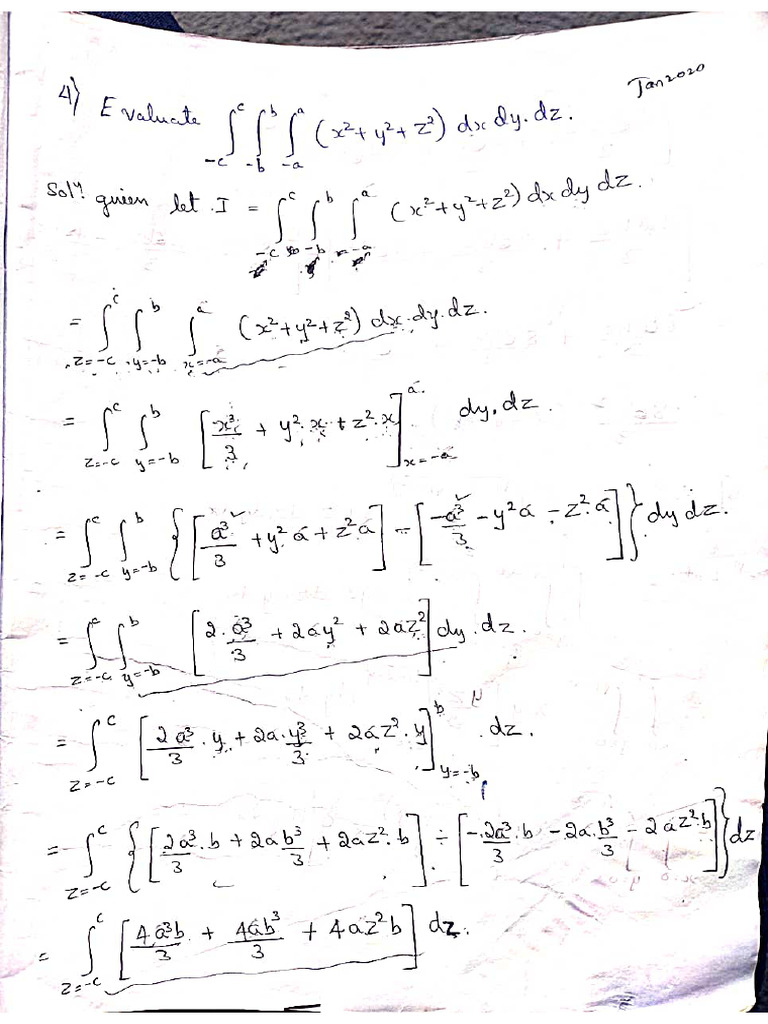 Jan2020
4) Evaluate ∫_{-c}^{c} ∫_{-b}^{b} ∫_{-a}^{a} (x²+y²+z²) dx dy.dz.
Solⁿ. given let .I = ∫_{-c}^{c} ∫_{-b}^{b} ∫_{-a}^{a} (x²+y²+z²) dx dy dz.
= ∫_{z=-c}^{c} ∫_{y=-b}^{b} ∫_{x=-a}^{a} (x²+y²+z²) dx.dy.dz.
= ∫_{z=-c}^{c} ∫_{y=-b}^{b} [x³/3 + y².x + z².x]_{x=-a}^{a} dy.dz
= ∫_{z=-c}^{c} ∫_{y=-b}^{b} {[a³/3 + y²a + z²a] - [-a³/3 - y²a - z².a]} dy dz.
= ∫_{z=-c}^{c} ∫_{y=-b}^{b} [2.a³/3 + 2ay² + 2az²] dy.dz.
= ∫_{z=-c}^{c} [2a³/3 .y + 2a.y³/3 + 2az².y]_{y=-b}^{b} dz.
= ∫_{z=-c}^{c} {[2a³/3 .b + 2ab³/3 + 2az².b] - [-2a³/3 .b - 2a.b³/3 - 2az².b]} dz
= ∫_{z=-c}^{c} [4a³b/3 + 4ab³/3 + 4az²b] dz.